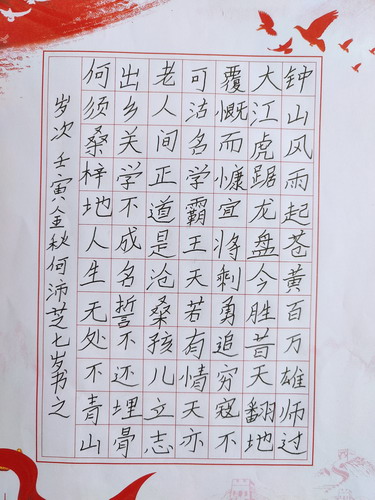 钟山风雨起苍黄百万雄师过
大江虎踞龙盘今胜昔天翻地
覆慨而慷宜将剩勇追穷寇不
可沽名学霸王天若有情天亦
老人间正道是沧桑孩儿立志
出乡关学不成名誓不还埋骨
何须桑梓地人生无处不青山
岁次壬寅金秋何沛芝七岁书之